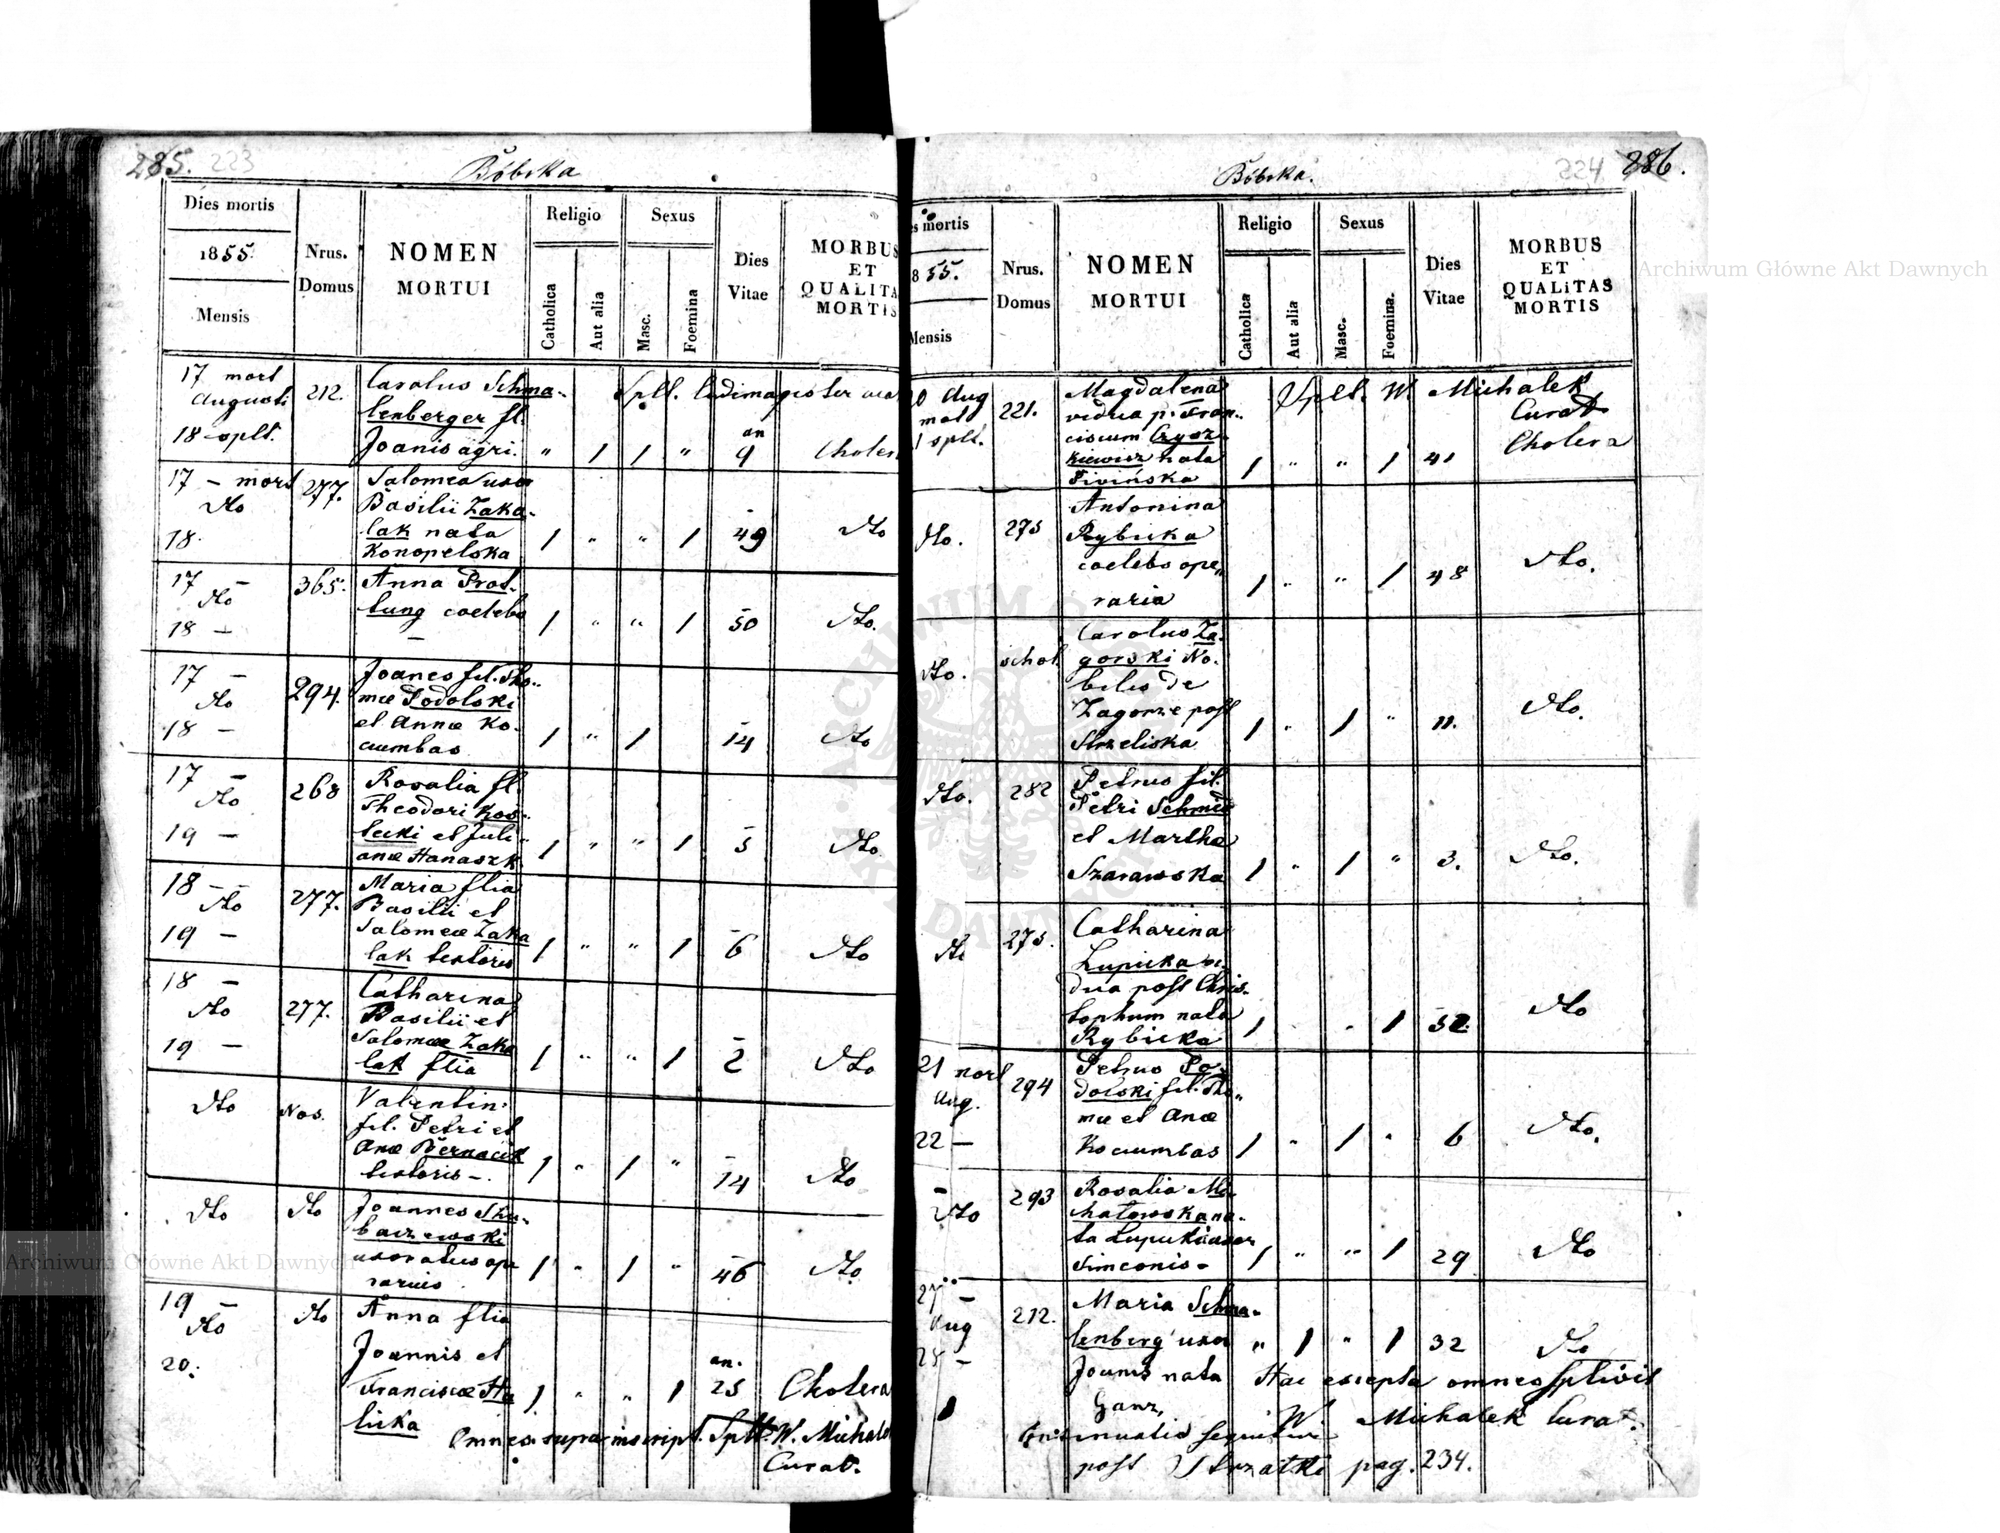 285. 223
Bóbrka
Dies mortis
1855.
Mensis
Nrus.
Domus
NOMEN
MORTUI
Religio
Catholica
Aut alia
Sexus
Masc.
Foemina
Dies
Vitae
MORBUS
ET
QUALITA
MORTIS
17 mort
Augusti
18 splt.
212.
Carolus Schma-
lenberger fil.
Joanis agri.
Splt. ludimagister
" 1 1 " an 9 Choler
17 - mort
dto
18.
277.
Salomea uxor
Basilii Zaka-
lak nata
Konopelska
1 " " 1 49 dto
17 -
dto
18 -
365.
Anna Prot-
tung coelebs
1 " " 1 50 dto.
17 -
dto
18 -
294.
Joanes fil. Tho-
mae Podolski
et Annae Ko-
ciumbas
1 " 1 14 dto
17 -
dto
19 -
268
Rosalia fil.
Theodori Kos-
tecki et Juli-
anae Hanaszk
1 " " 1 5 dto
18 -
dto
19 -
277.
Maria filia
Basilii et
Salomeae Zaka
lak textoris
1 " " 1 6 dto
18 -
dto
19 -
277.
Catharina
Basilii et
Salomeae Zaka
lak filia
1 " " 1 2 dto
dto
Nos.
Valentin
fil. Petri et
Anae Bernacik
textoris -.
1 " 1 " 14 dto
dto
dto
Joannes
uxoratus ope
rarius
1 " 1 " 46 dto
19 -
dto
20.
dto
Anna filia
Joannis et
Franciscae Ha
licka
1 " " 1 an. 25 Cholera
Omnes supra inscript. Splt. W. Michale
Curat.
Bóbrka.
224 286.
es mortis
855.
Mensis
Nrus.
Domus
NOMEN
MORTUI
Religio
Catholica
Aut alia
Sexus
Masc.
Foemina.
Dies
Vitae
MORBUS
ET
QUALITAS
MORTIS
0 Aug
mort
1 splt.
221.
Magdalena
vidua p. Fran-
ciscum Czysz-
kiewicz nata
Piwińska
Splt. W. Michalek
Curat
1 " " 1 41 Cholera
dto.
275
Antonina
Rybicka
coelebs ope-
raria
1 " " 1 48 dto.
dto.
schol.
Carolus Za-
gorski No-
bilis de
Zagorze post
Strzeliska
1 " 1 " 11. dto.
dto.
282
Petrus fil.
Petri Schmid
et Martha
Szarawska
1 " 1 " 3. dto.
275.
Catharina
Lupicka vi-
dua post Chris-
tophum nata
Rybicka
1 " 1 52. dto
21 mort
Aug.
22 -
294
Petrus Po-
dolski fil. Tho-
mae et Anae
Kociumbas
1 " 1 " 6 dto.
dto
293
Rosalia Mi-
chałowska na-
ta Lupicki uxor
Simeonis -
1 " " 1 29 dto
27 -
Aug
25 -
212.
Maria Schma-
lenberg uxor
Joanis nata
Ganz,
" 1 " 1 32 dto
Hac excepta omnes splivit
W. Michalek Curat.
Continuatio sequitur
post Strzałki pag. 234.
Archiwum Główne Akt Dawnych
Archiwum Główne Akt Dawnych
ARCHIWUM GŁÓWNE AKT DAWNYCH